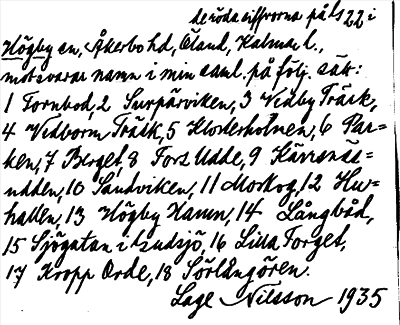 de röda siffrorna på s 22 i
Högby sn, Åkerbo hd, Öland, Kalmar l.,
motsvarar namn i min saml. på följ. sätt:
1 Tornbod, 2 Surpärviken, 3 Vedby Träsk,
4 Vedborm Träsk, 5 Klosterholmen, 6 Par=
ken, 7 Berget, 8 Fors Udde, 9 Kärrsnäs=
udden, 10 Sandviken, 11 Morskog, 12 Hu=
hallen, 13 Högby Hamn, 14 Långbåd,
15 Sjögatan i Ludsjö, 16 Lilla Torget,
17 Kropp Orde, 18 Sörlångören.
Lage Nilsson 1935